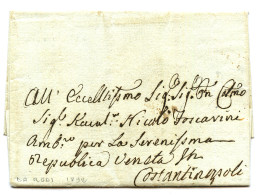 All' Eccellentissimo Sig.r Sig.r Pn Colmo
Sig.r Kaval.r Nicolò Foscarini
Amb.re per La Serenissima
Republica Veneta In
Costantinopoli
DA RODI